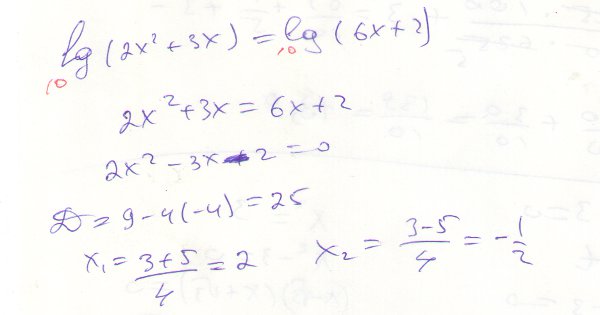 lg₁₀(2x² + 3x) = lg₁₀(6x + 2)
2x² + 3x = 6x + 2
2x² - 3x - 2 = 0
D = 9 - 4(-4) = 25
x₁ = (3+5)/4 = 2    x₂ = (3-5)/4 = -1/2